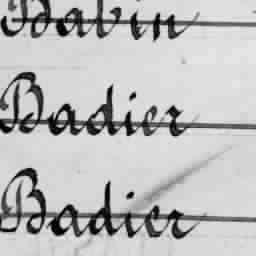 Babin
Badier
Badier